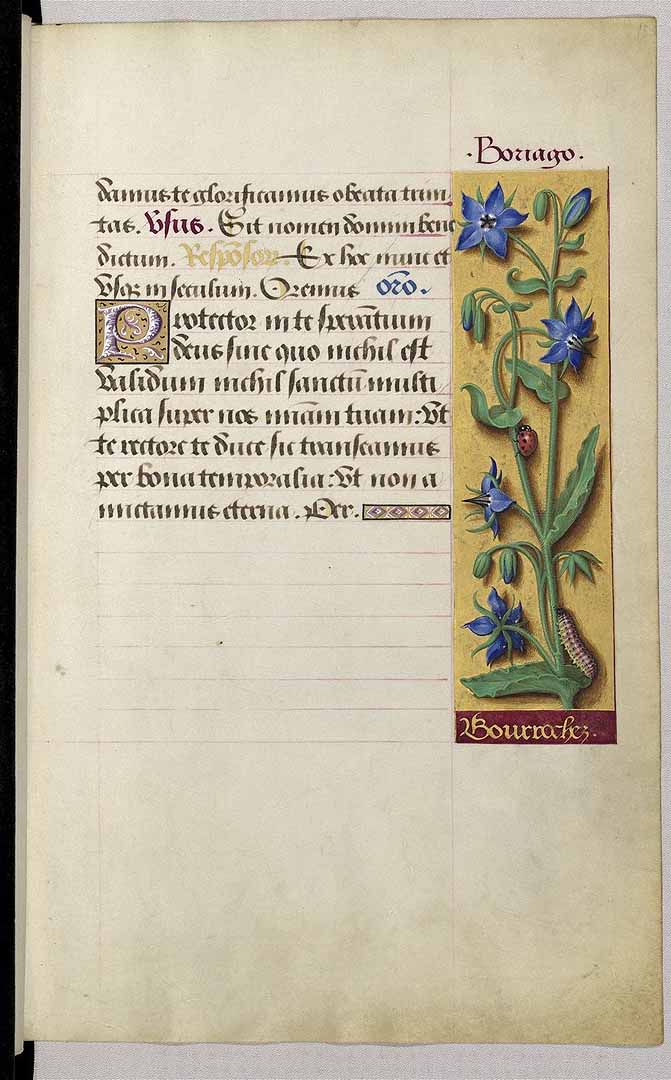 .Boriago.
damus te glorificamus o beata trini
tas. Vsus. Sit nomen domini bene
dictum. Respõsor. Ex hoc nunc et
Vsqz in seculum. Oremus orõ.
Protector in te sperãtium
deus sine quo nichil est
Validum nichil sanctũ multi
plica super nos miãm tuam: Vt
te rectore te duce sic transeamus
per bona temporalia: Vt non a
mictamus eterna. Per.
Bourrachez.